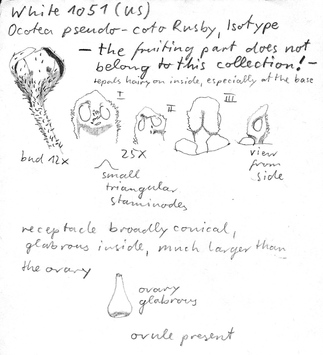 White 1051 (US)
Ocotea pseudo-coto Rusby, Isotype
- the fruiting part does not
belong to this collection! -
tepals hairy on inside, especially at the base
I
II
III
bud 12x
25x
view
from
side
small
triangular
staminodes
receptacle broadly conical,
glabrous inside, much larger than
the ovary
ovary
glabrous
ovule present